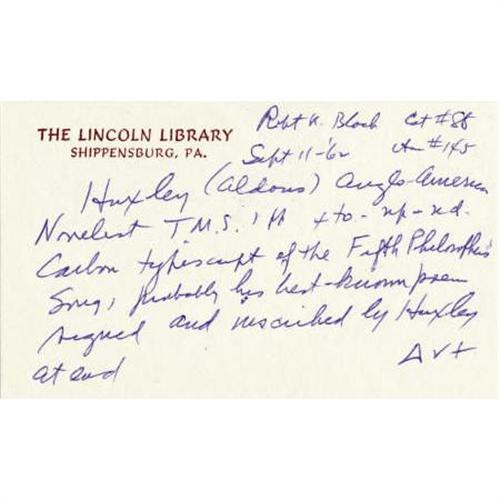 THE LINCOLN LIBRARY
SHIPPENSBURG, PA.
Robt K. Black Cat # 88
Sept 11-'62 #145
Huxley (Aldous) Anglo-American
Novelist T.M.S. 1 pp 4to - np - nd.
Carbon typescript of the Fifth Philosopher's
Song, probably his best-known poem
signed and inscribed by Huxley
at end